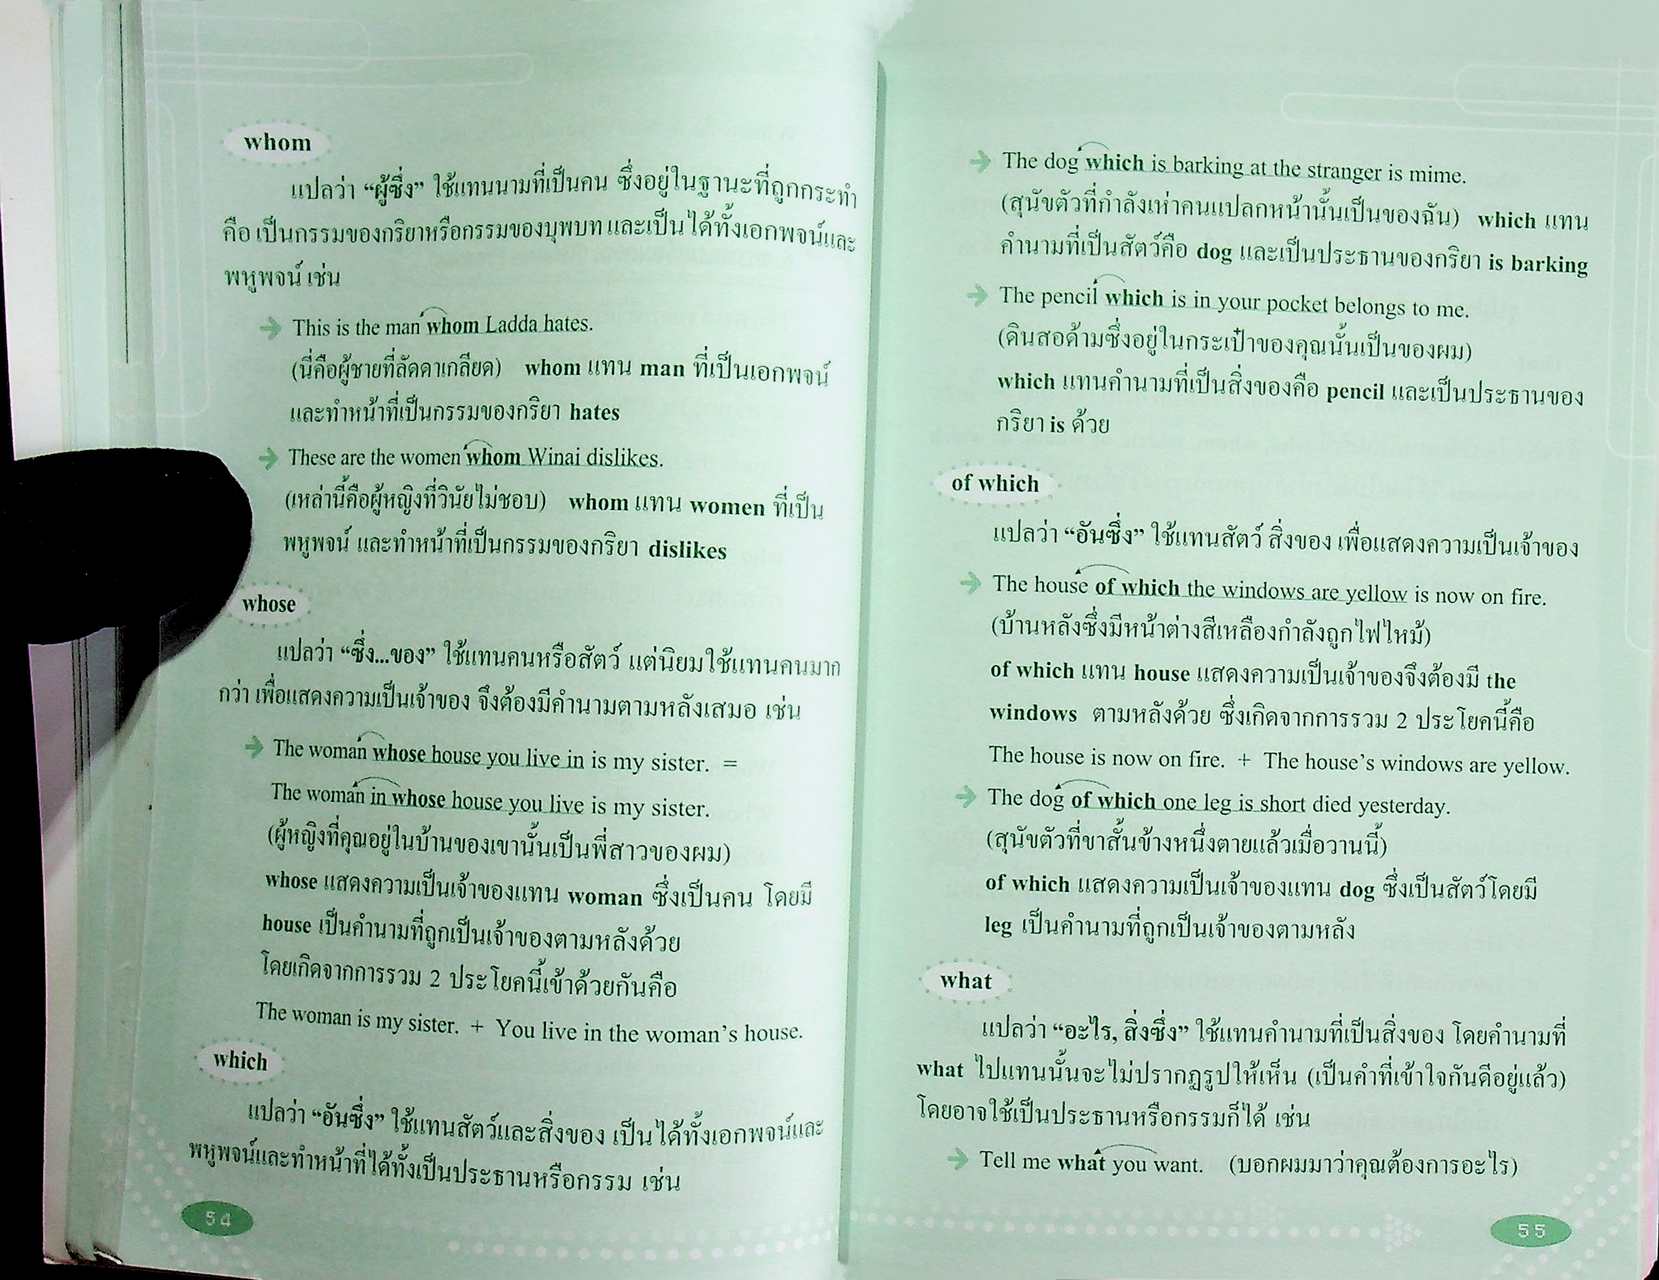 whom
แปลว่า “ผู้ซึ่ง” ใช้แทนนามที่เป็นคน ซึ่งอยู่ในฐานะที่ถูกกระทำ
คือ เป็นกรรมของกริยาหรือกรรมของบุพบท และเป็นได้ทั้งเอกพจน์และ
พหูพจน์ เช่น
This is the man whom Ladda hates.
(นี่คือผู้ชายที่ลัดดาเกลียด) whom แทน man ที่เป็นเอกพจน์
และทำหน้าที่เป็นกรรมของกริยา hates
These are the women whom Winai dislikes.
(เหล่านี้คือผู้หญิงที่วินัยไม่ชอบ) whom แทน women ที่เป็น
พหูพจน์ และทำหน้าที่เป็นกรรมของกริยา dislikes
whose
แปลว่า “ซึ่ง...ของ” ใช้แทนคนหรือสัตว์ แต่นิยมใช้แทนคนมาก
กว่า เพื่อแสดงความเป็นเจ้าของ จึงต้องมีคำนามตามหลังเสมอ เช่น
The woman whose house you live in is my sister. =
The woman in whose house you live is my sister.
(ผู้หญิงที่คุณอยู่ในบ้านของเขานั้นเป็นพี่สาวของผม)
whose แสดงความเป็นเจ้าของแทน woman ซึ่งเป็นคน โดยมี
house เป็นคำนามที่ถูกเป็นเจ้าของตามหลังด้วย
โดยเกิดจากการรวม 2 ประโยคนี้เข้าด้วยกันคือ
The woman is my sister. + You live in the woman’s house.
which
แปลว่า “อันซึ่ง” ใช้แทนสัตว์และสิ่งของ เป็นได้ทั้งเอกพจน์และ
พหูพจน์และทำหน้าที่ได้ทั้งเป็นประธานหรือกรรม เช่น
54
The dog which is barking at the stranger is mime.
(สุนัขตัวที่กำลังเห่าคนแปลกหน้านั้นเป็นของฉัน) which แทน
คำนามที่เป็นสัตว์คือ dog และเป็นประธานของกริยา is barking
The pencil which is in your pocket belongs to me.
(ดินสอด้ามซึ่งอยู่ในกระเป๋าของคุณนั้นเป็นของผม)
which แทนคำนามที่เป็นสิ่งของคือ pencil และเป็นประธานของ
กริยา is ด้วย
of which
แปลว่า “อันซึ่ง” ใช้แทนสัตว์ สิ่งของ เพื่อแสดงความเป็นเจ้าของ
The house of which the windows are yellow is now on fire.
(บ้านหลังซึ่งมีหน้าต่างสีเหลืองกำลังถูกไฟไหม้)
of which แทน house แสดงความเป็นเจ้าของจึงต้องมี the
windows ตามหลังด้วย ซึ่งเกิดจากการรวม 2 ประโยคนี้คือ
The house is now on fire. + The house’s windows are yellow.
The dog of which one leg is short died yesterday.
(สุนัขตัวที่ขาสั้นข้างหนึ่งตายแล้วเมื่อวานนี้)
of which แสดงความเป็นเจ้าของแทน dog ซึ่งเป็นสัตว์โดยมี
leg เป็นคำนามที่ถูกเป็นเจ้าของตามหลัง
what
แปลว่า “อะไร, สิ่งซึ่ง” ใช้แทนคำนามที่เป็นสิ่งของ โดยคำนามที่
what ไปแทนนั้นจะไม่ปรากฏรูปให้เห็น (เป็นคำที่เข้าใจกันดีอยู่แล้ว)
โดยอาจใช้เป็นประธานหรือกรรมก็ได้ เช่น
Tell me what you want. (บอกผมมาว่าคุณต้องการอะไร)
55